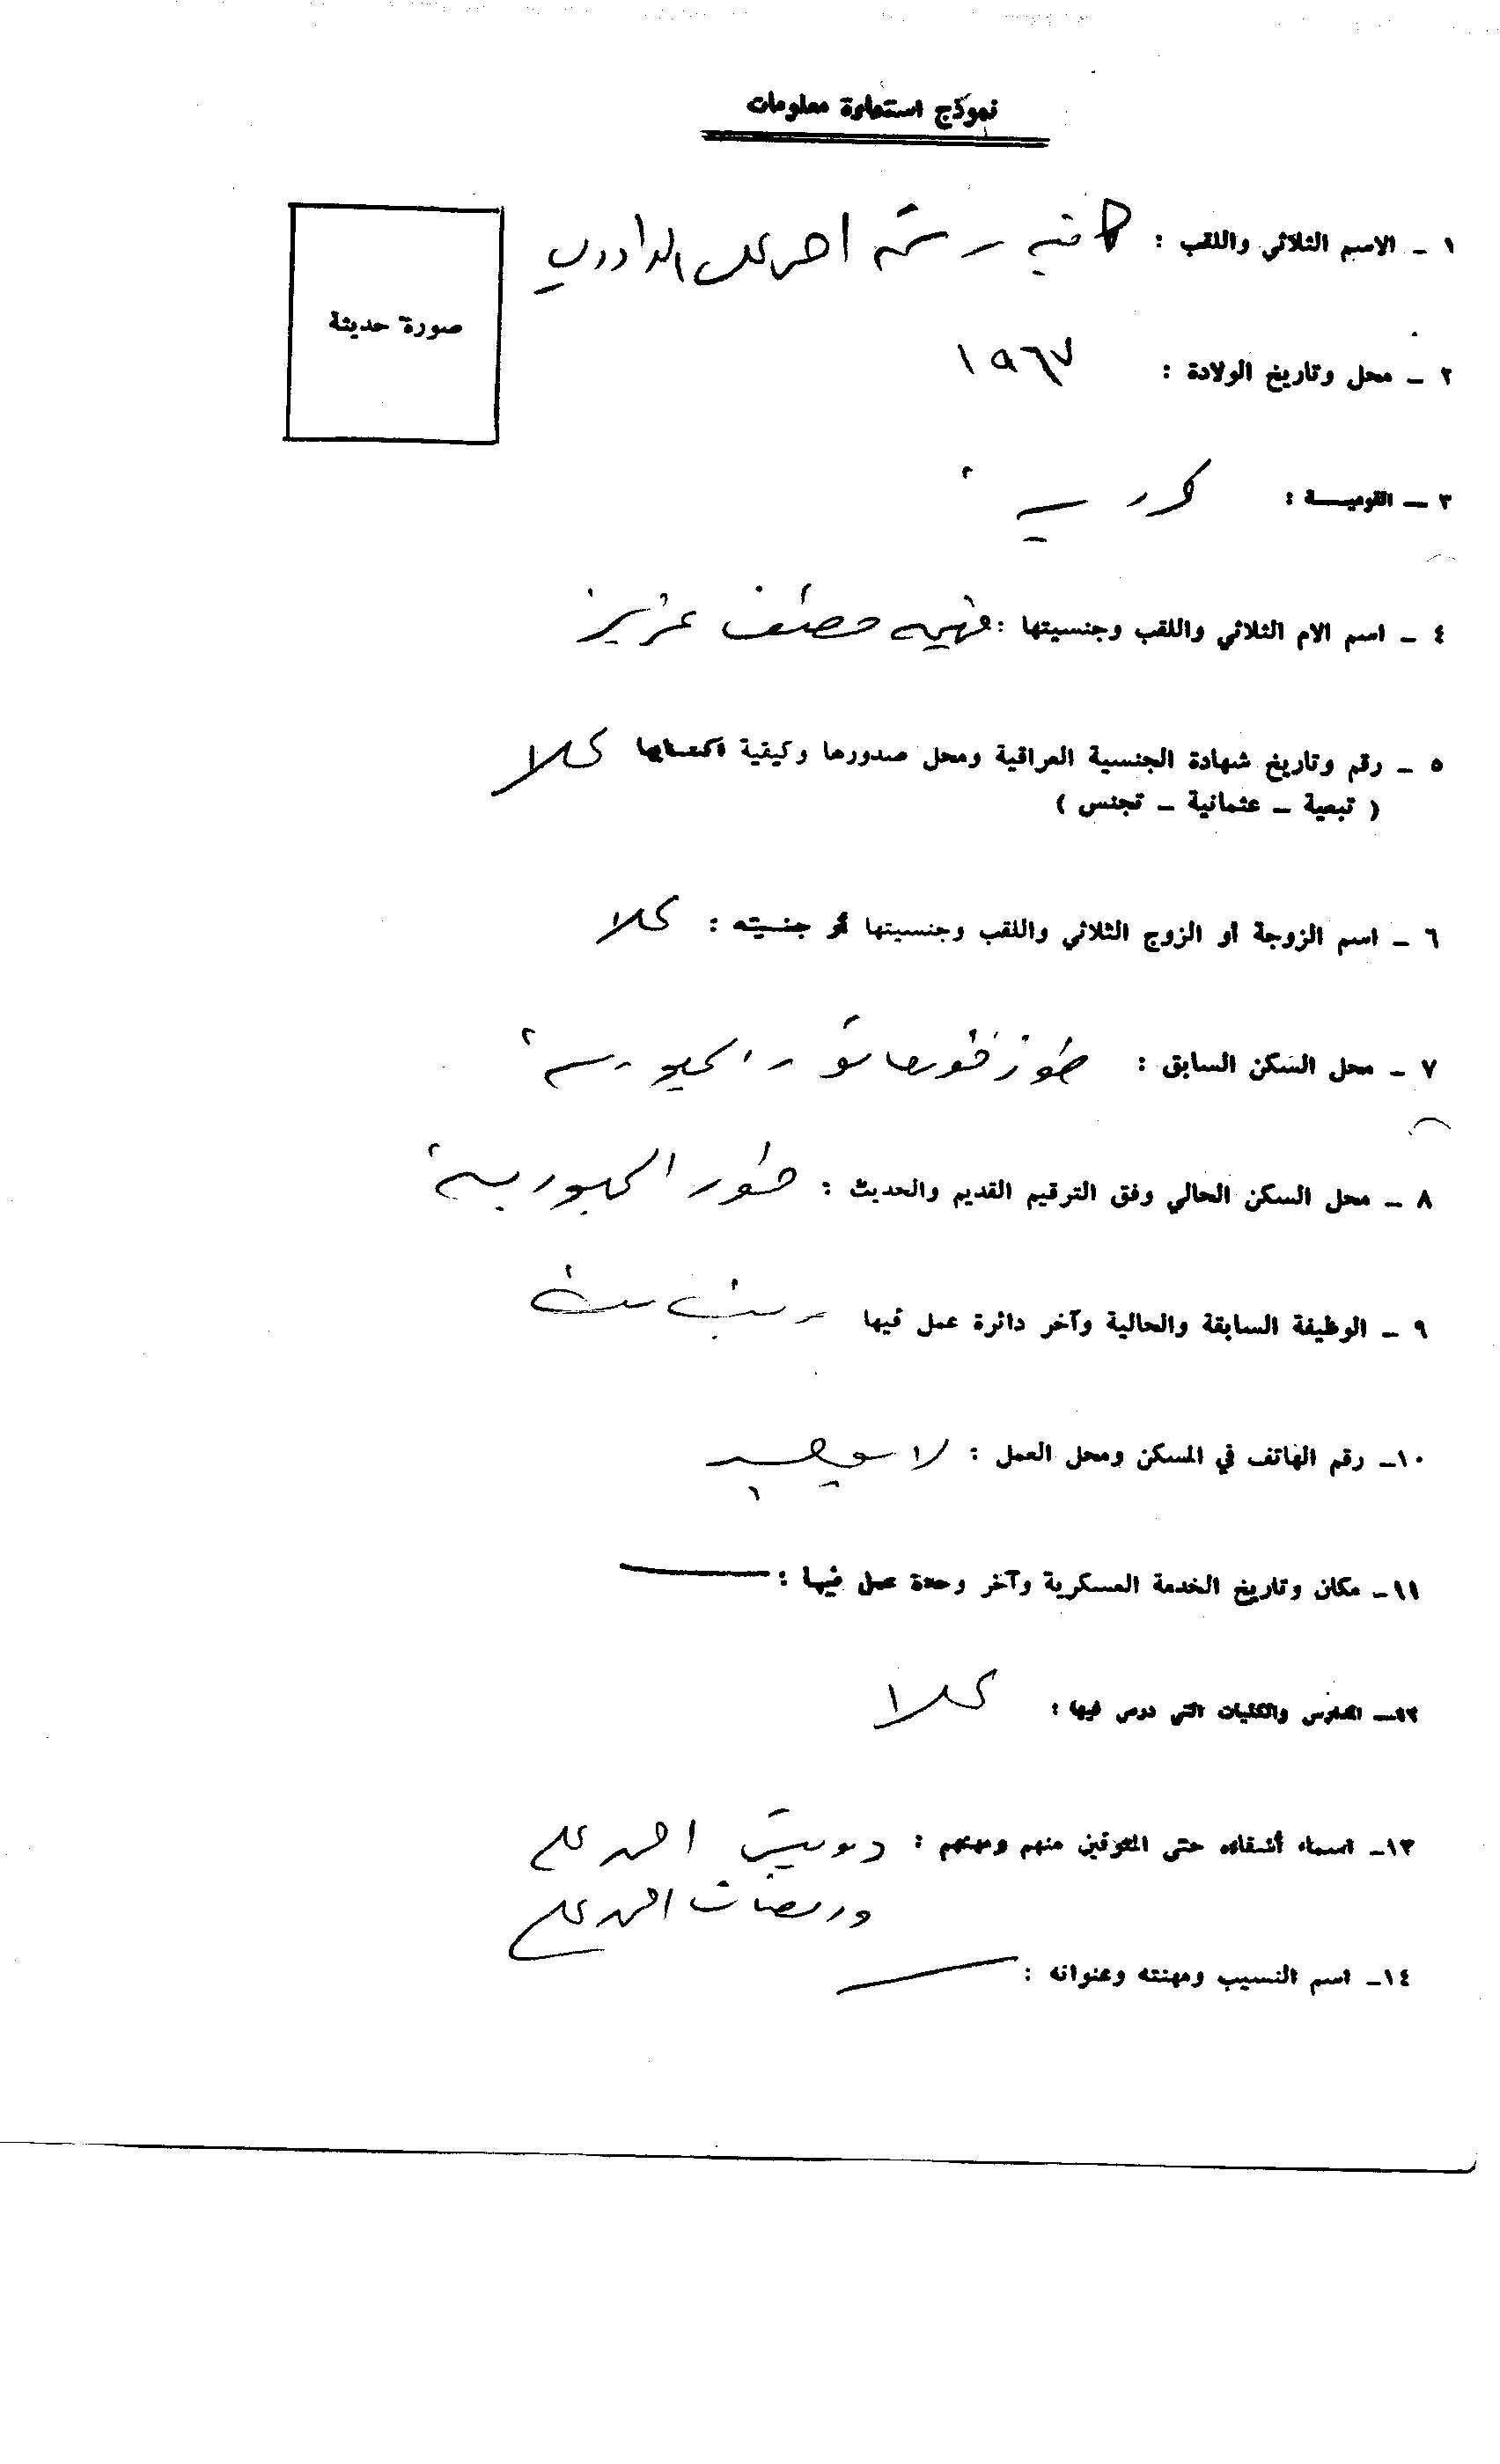 نموذج استمارة معلومات
صورة حديثة
١ ـ الاسم الثلاثي واللقب : احمد علي الداودي
٢ ـ محل وتاريخ الولادة : ١٩٦٧
٣ ـ القوميـــة : كردية
٤ ـ اسم الام الثلاثي واللقب وجنسيتها : فهيمه مصطفى عزيز
٥ ـ رقم وتاريخ شهادة الجنسية العراقية ومحل صدورها وكيفية اكتسابها كلا
( تبعية ـ عثمانية ـ تجنس )
٦ ـ اسم الزوجة أو الزوج الثلاثي واللقب وجنسيتها أو جنسيته : كلا
٧ ـ محل السكن السابق : طوز خورماتو
٨ ـ محل السكن الحالي وفق الترقيم القديم والحديث : الجمهورية
٩ ـ الوظيفة السابقة والحالية وآخر دائرة عمل فيها ربة بيت
١٠ـ رقم الهاتف في المسكن ومحل العمل : لا يوجد
١١ـ مكان وتاريخ الخدمة العسكرية وآخر وحدة عمل فيها :
١٢ـ المدارس والكليات التي درس فيها : كلا
١٣ـ اسماء أشقاءه حتى المتوفين منهم ومهنهم : احمد علي
ورمضان احمد علي
١٤ـ اسم النسيب ومهنته وعنوانه :